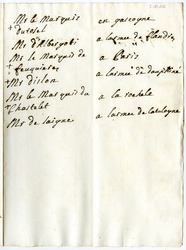 Mr le Marquis en gascogne
+ dutesel
Mr d'Albergoti a larmee de flandre
Mr le Marquis de a Paris
+ feuquieres
+ Mr dislon a larmee de dauphiné
+ Mr le Marquis du a la rochele
Chastelet
Mr de laigne a larmee de catalogne